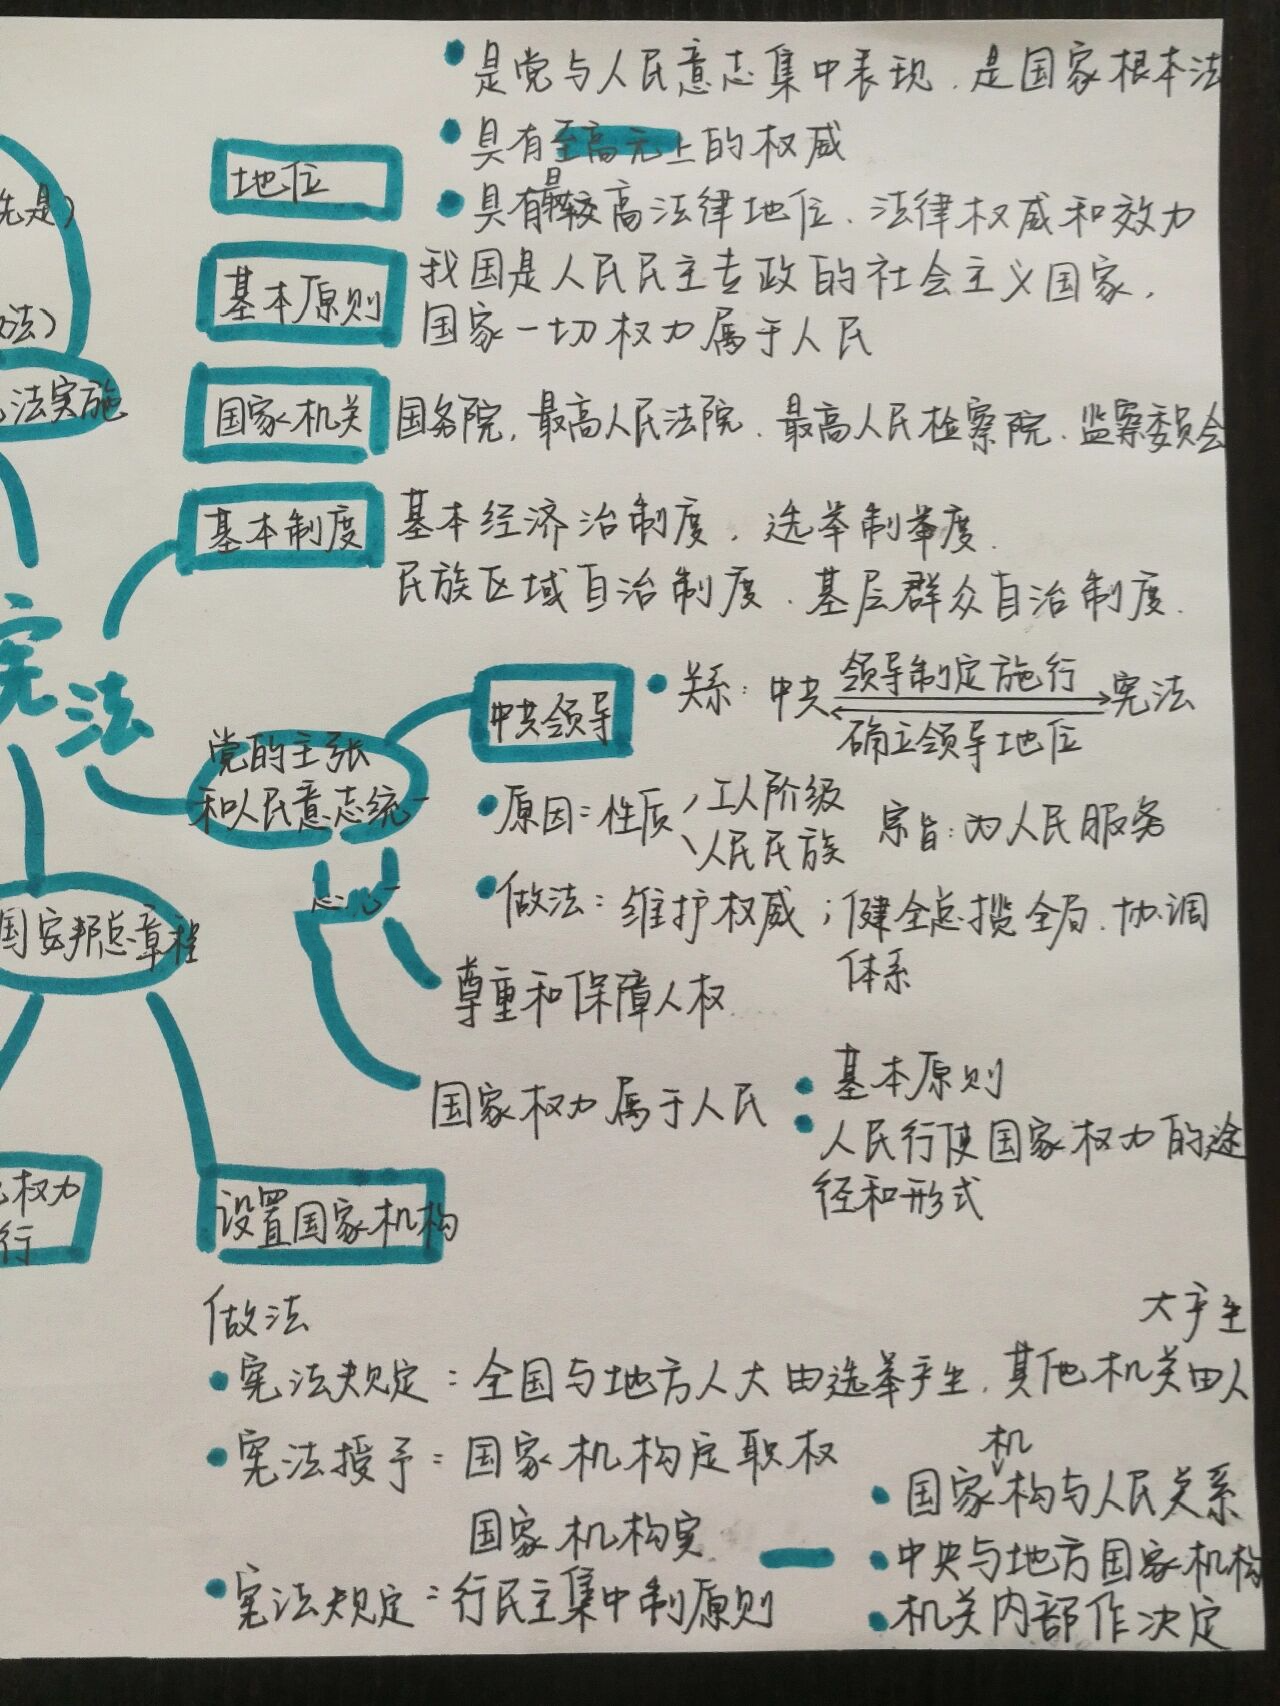 是党与人民意志集中表现、是国家根本法
具有至高无上的权威
地位
具有最较高法律地位、法律权威和效力
先是)
我国是人民民主专政的社会主义国家,
基本原则
国家一切权力属于人民
法)
法实施
国家机关
国务院、最高人民法院、最高人民检察院、监察委员会
基本制度
基本经济治制度,选举制举度、
民族区域自治制度、基层群众自治制度、
宪法
中共领导
关系:中共 领导制定施行 宪法
确立领导地位
党的主张
和人民意志统一
原因:性质 工人阶级
人民民族
宗旨:为人民服务
做法:维护权威;健全总揽全局、协调
体系
国安邦总章程
尊重和保障人权
国家权力属于人民
基本原则
人民行使国家权力的途
径和形式
权力
行
设置国家机构
做法
大产生
宪法规定:全国与地方人大由选举产生,其他机关由人
宪法授予:国家机构定职权
机
国家构与人民关系
国家机构实
中央与地方国家机构
宪法规定:行民主集中制原则
机关内部作决定